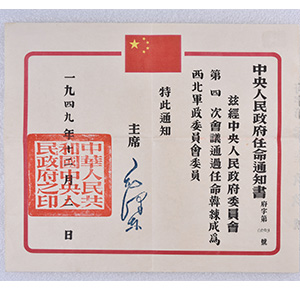 中央人民政府任命通知書
府字第 號
茲經中央人民政府委員會
第四次會議通過任命韓練成為
西北軍政委員會委員
特此通知
主席
毛澤東
一九四九年十二月 日
中華人民共
和國中央人
民政府之印